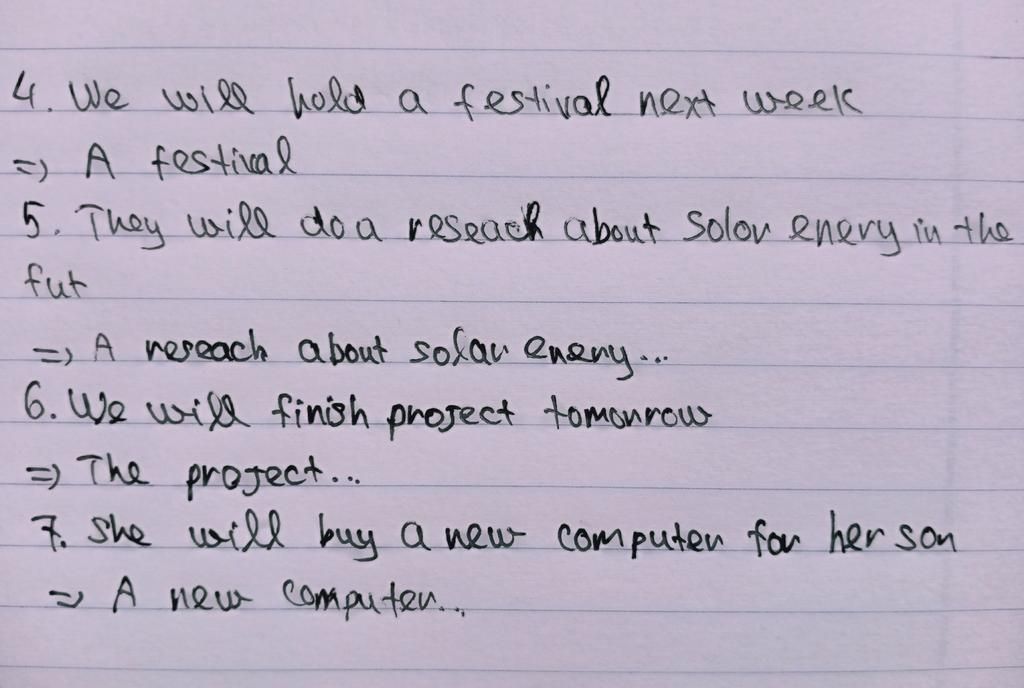 4. We will hold a festival next week
=> A festival
5. They will do a reseach about Solar enery in the
fut
=> A reseach about solar enery...
6. We will finish project tomorrow
=> The project...
7. She will buy a new computer for her son
=> A new computer...